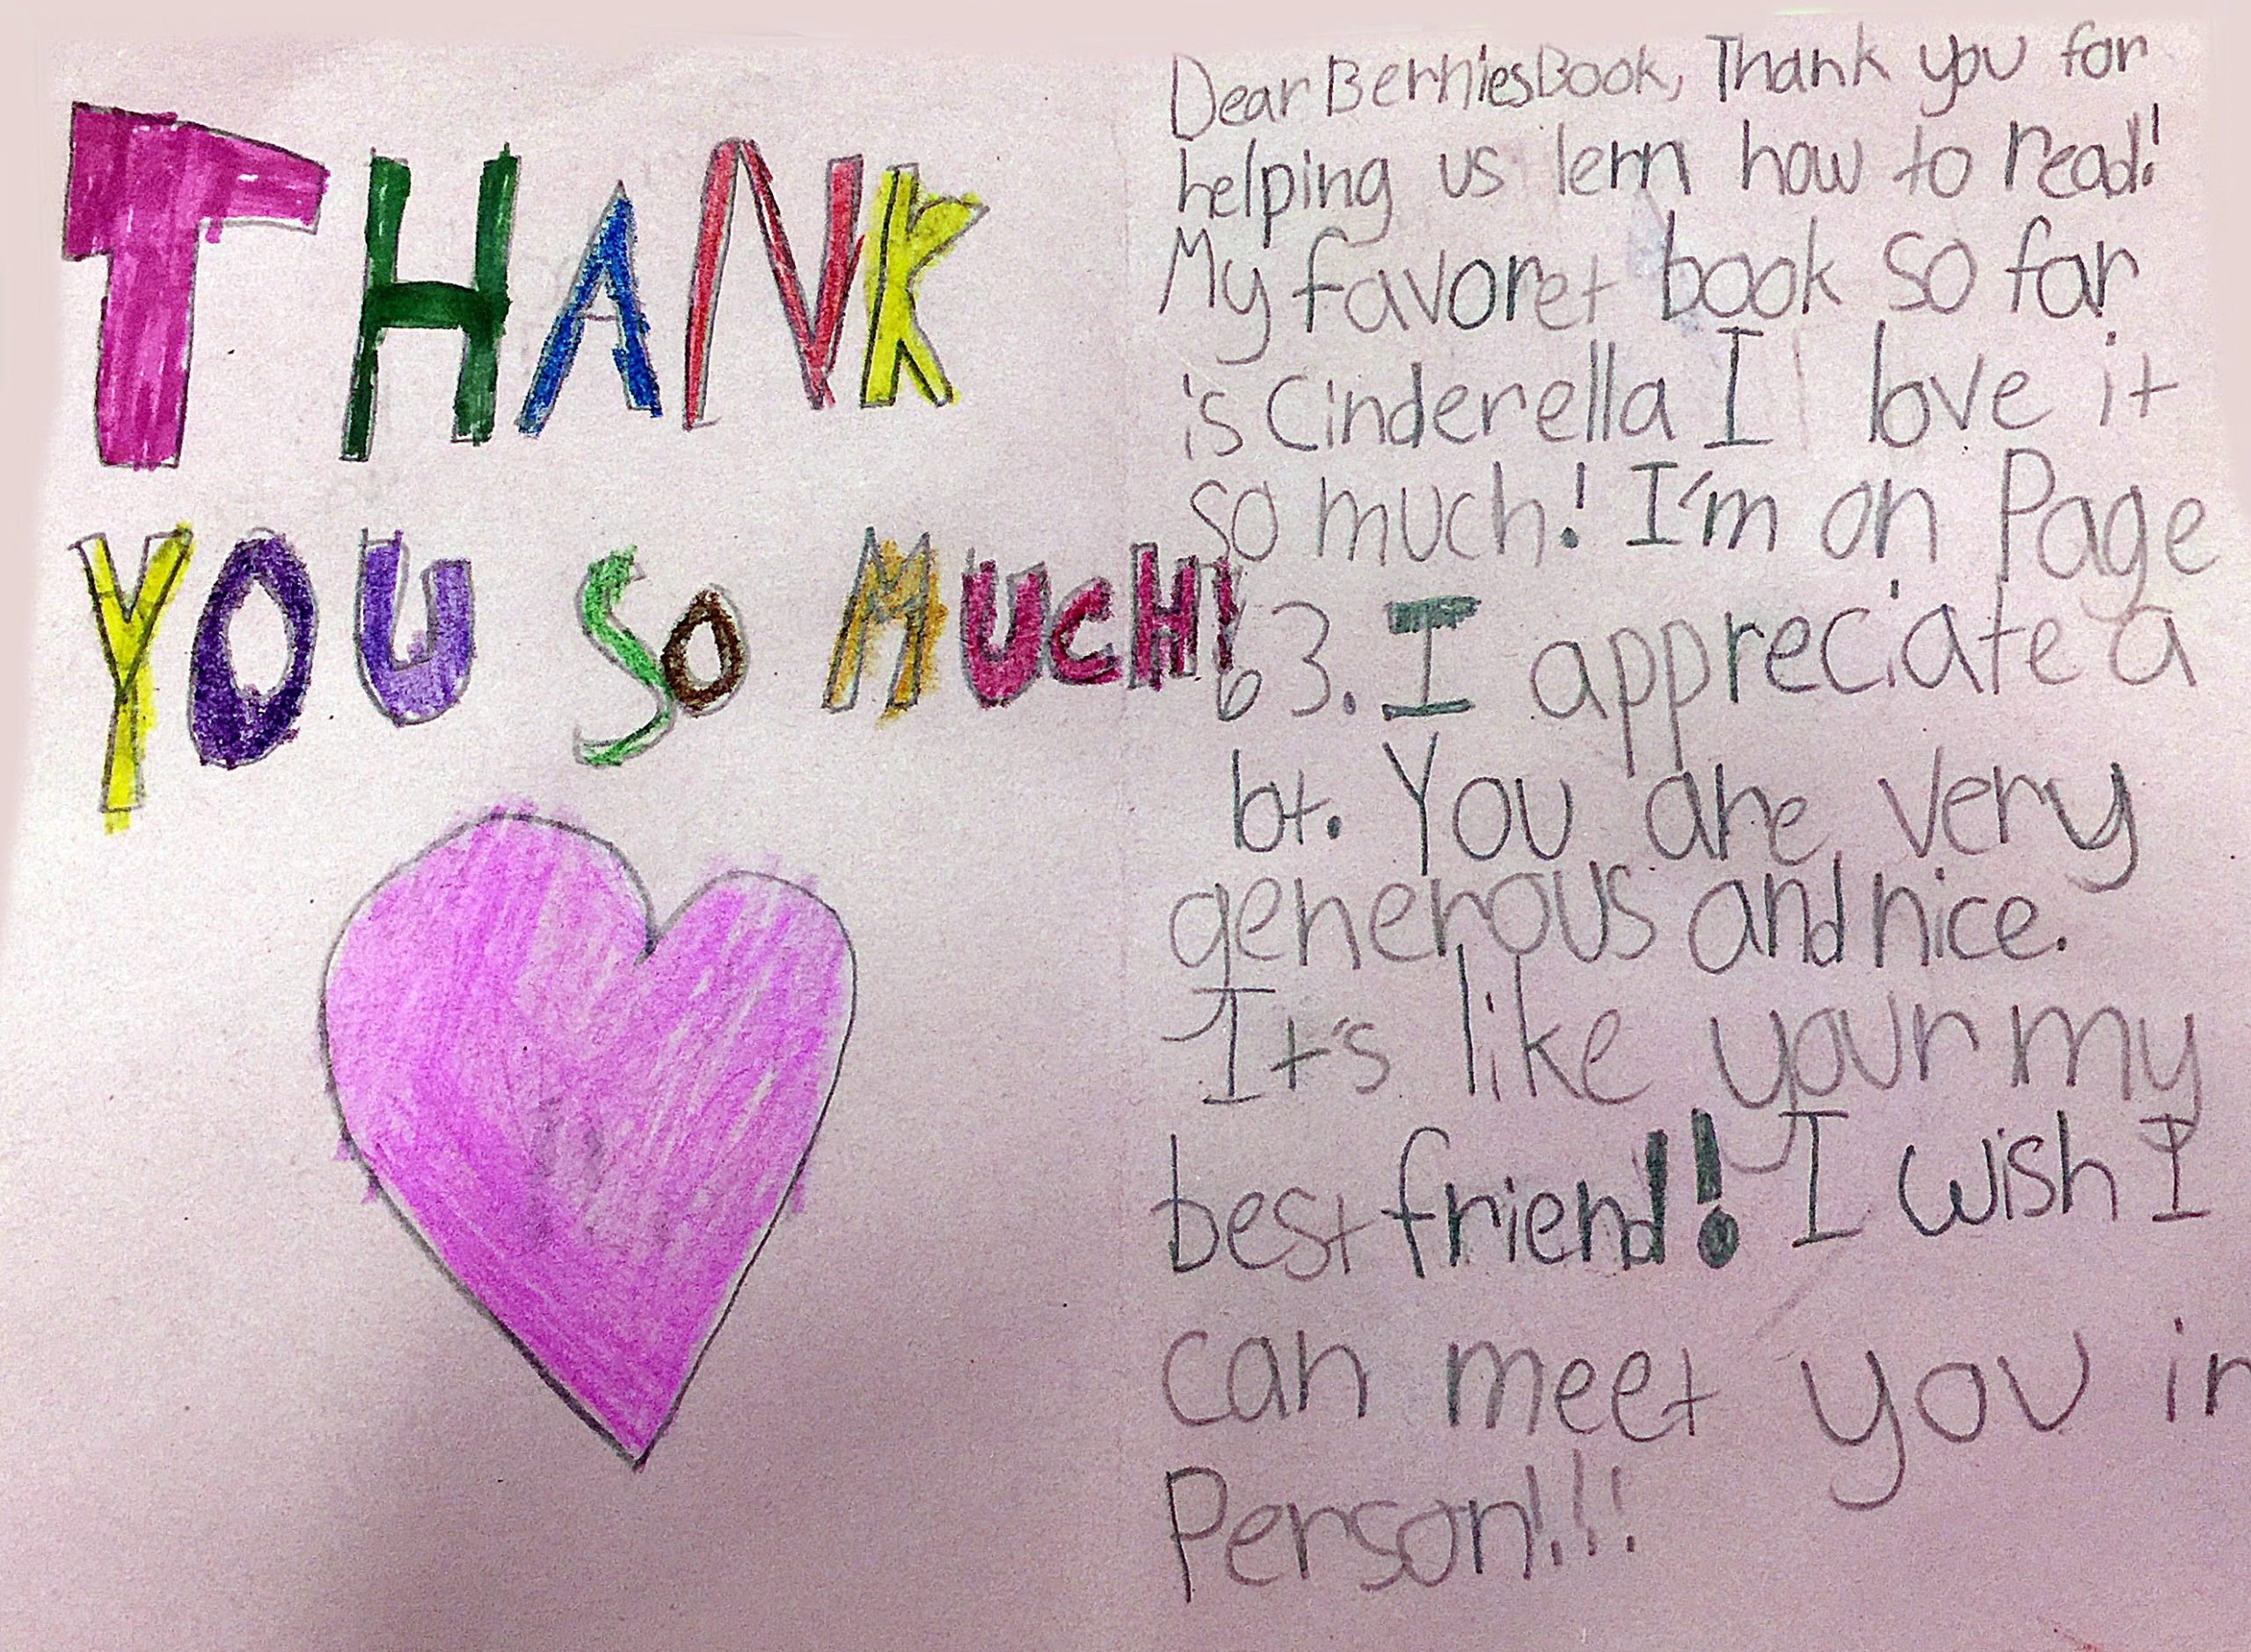 THANK
YOU SO MUCH!
Dear BerniesBook, Thank you for
helping us lern how to read!
My favoret book so far
is Cinderella I love it
so much! I'm on Page
63. I appreciate a
bt. You are very
generous and nice.
It's like your my
best friend! I wish I
can meet you in
Person!!!